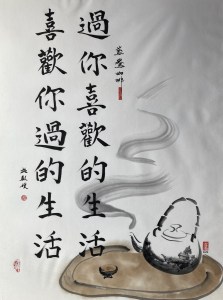 過你喜歡的生活
喜歡你過的生活